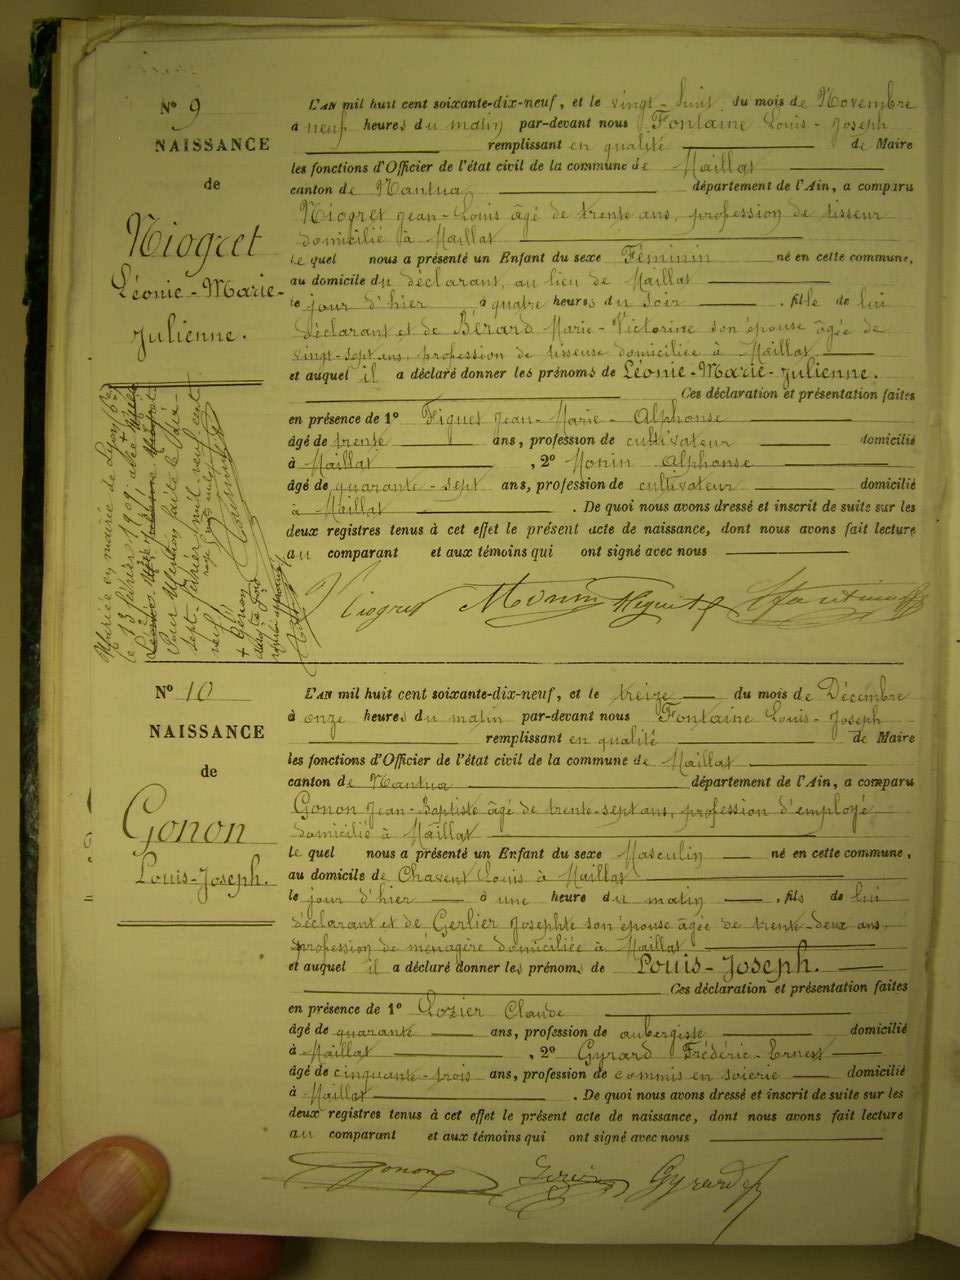 N° 9
NAISSANCE
de
Niogret
Léonie-Marie-
Julienne.
Mariée en mairie de Lyon (6e)
le 13 février 1909, avec
Pour Mention faite le vingt
sept février mil neuf cent
neuf
+ Gonon
L'AN mil huit cent soixante-dix-neuf, et le vingt-huit du mois de Novembre
à neuf heures du matin par-devant nous Fontaine Louis-Joseph
remplissant en qualité de Maire
les fonctions d'Officier de l'état civil de la commune de Maillat
canton de Nantua département de l'Ain, a comparu
Niogret Jean-Louis âgé de trente ans, profession de tisseur
domicilié à Maillat
le quel nous a présenté un Enfant du sexe Féminin né en cette commune,
au domicile du déclarant, au lieu de Maillat
le jour d'hier à quatre heures du soir , fille de lui
déclarant et de Bérard Marie-Victorine son épouse âgée de
vingt-sept ans, profession de tisseuse domiciliée à Maillat
et auquel il a déclaré donner les prénoms de Léonie-Marie-Julienne.
Ces déclaration et présentation faites
en présence de 1° Figuet Jean-Marie-Alphonse
âgé de trente ans, profession de cultivateur domicilié
à Maillat , 2° Monin Alphonse
âgé de quarante-sept ans, profession de cultivateur domicilié
à Maillat . De quoi nous avons dressé et inscrit de suite sur les
deux registres tenus à cet effet le présent acte de naissance, dont nous avons fait lecture
au comparant et aux témoins qui ont signé avec nous
Niogret Monin Figuet Fontaine
N° 10
NAISSANCE
de
Gonon
Louis-Joseph.
L'AN mil huit cent soixante-dix-neuf, et le treize du mois de Décembre
à onze heures du matin par-devant nous Fontaine Louis-Joseph
remplissant en qualité de Maire
les fonctions d'Officier de l'état civil de la commune de Maillat
canton de Nantua département de l'Ain, a comparu
Gonon Jean-Baptiste âgé de trente-sept ans, profession d'employé
domicilié à Maillat
le quel nous a présenté un Enfant du sexe Masculin né en cette commune,
au domicile de Chavent Louis à Maillat
le jour d'hier à une heure du matin , fils de lui
déclarant et de Gerlier Josephte son épouse âgée de trente-deux ans,
profession de ménagère domiciliée à Maillat
et auquel il a déclaré donner les prénoms de Louis-Joseph.
Ces déclaration et présentation faites
en présence de 1° Lozier Claude
âgé de quarante ans, profession de aubergiste domicilié
à Maillat , 2° Gyrard Frédéric-Ernest
âgé de cinquante-trois ans, profession de commis en soierie domicilié
à Maillat . De quoi nous avons dressé et inscrit de suite sur les
deux registres tenus à cet effet le présent acte de naissance, dont nous avons fait lecture
au comparant et aux témoins qui ont signé avec nous
Gonon Gyrard